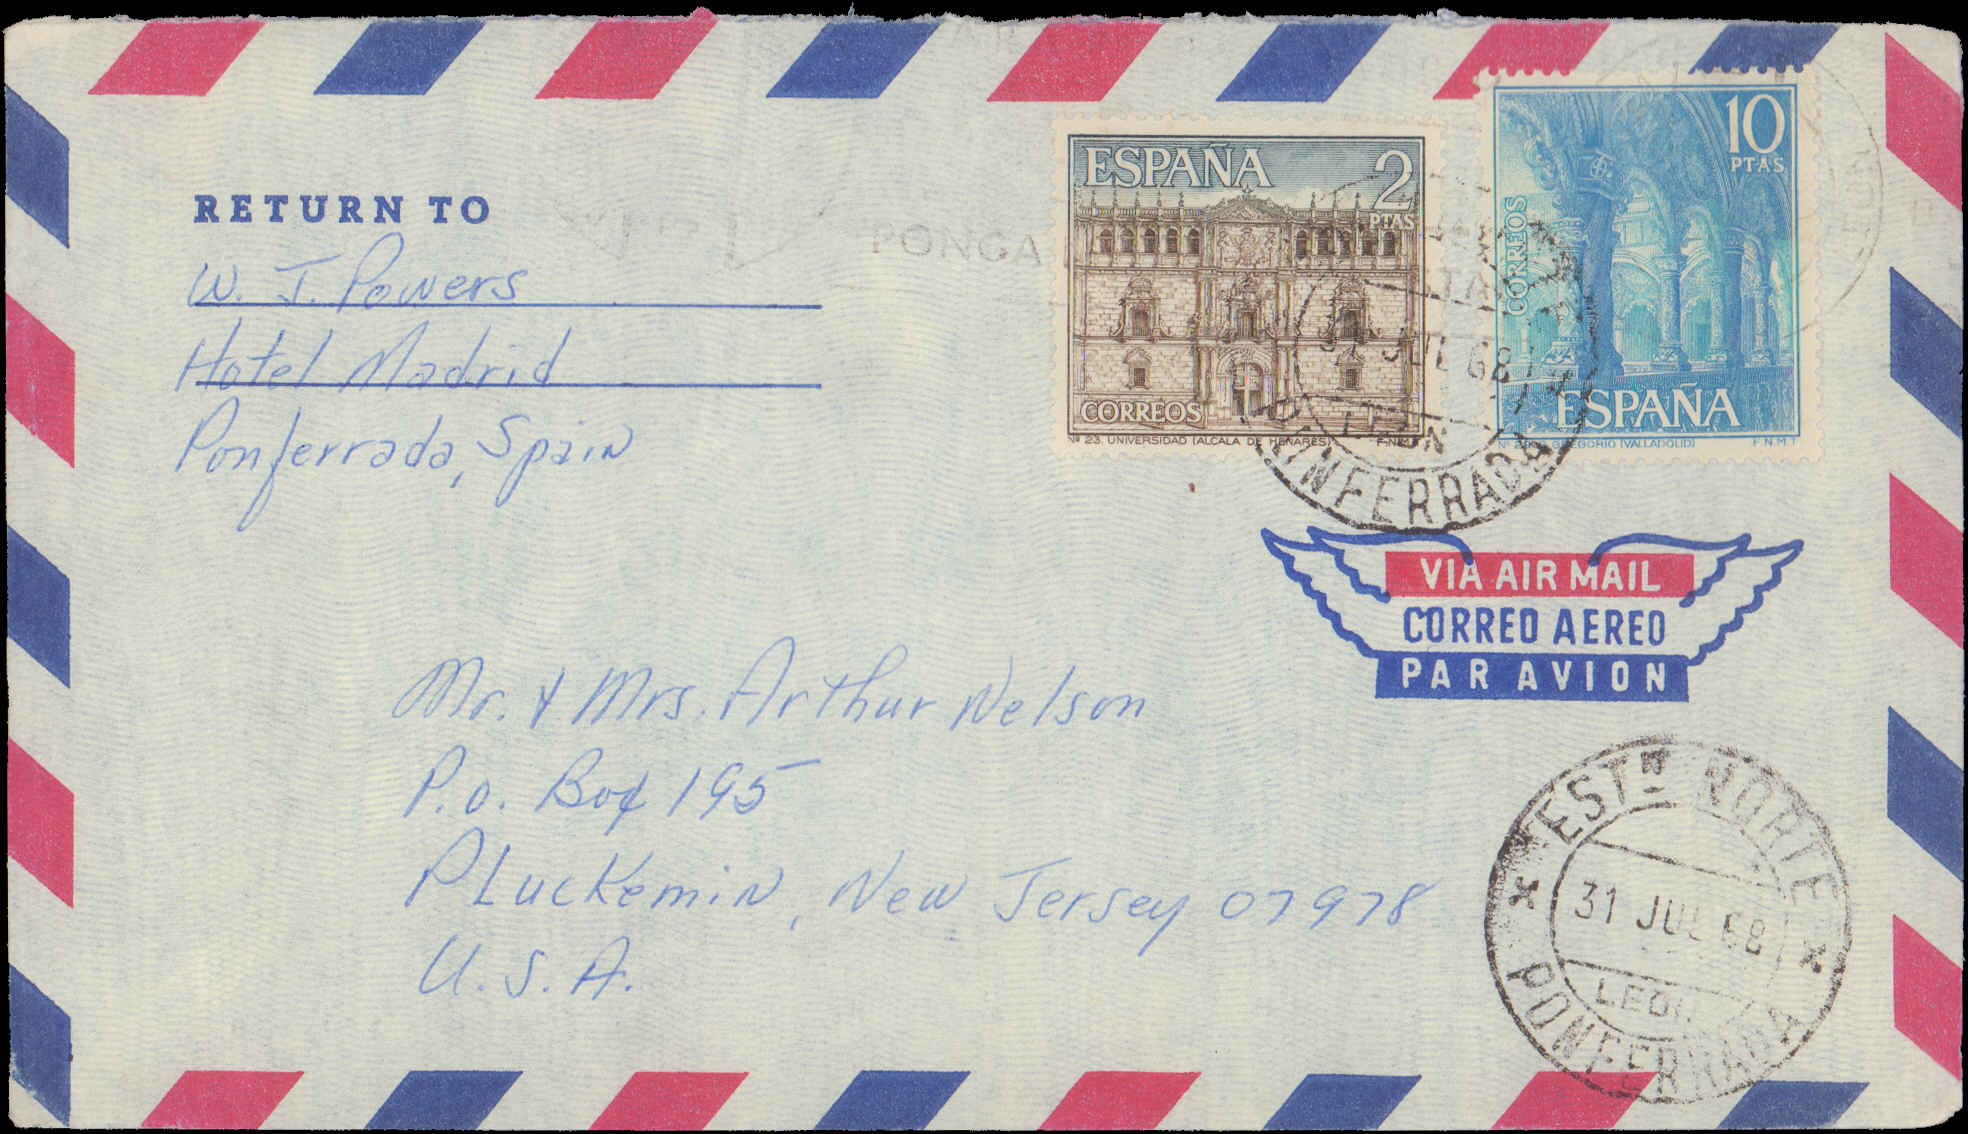 RETURN TO
W. J. Powers
Hotel Madrid
Ponferrada, Spain
PONGA
ESPAÑA 2
PTAS
CORREOS
Nº 23. UNIVERSIDAD (ALCALA DE HENARES) F.N.M.T
10
PTAS
CORREOS
ESPAÑA
GREGORIO (VALLADOLID) F.N.M.T
31 JUL 68
LEON
PONFERRADA
VIA AIR MAIL
CORREO AEREO
PAR AVION
Mr. & Mrs. Arthur Nelson
P.O. Box 195
Pluckemin, New Jersey 07978
U.S.A.
ESTN NORTE
31 JUL 68
LEON
PONFERRADA